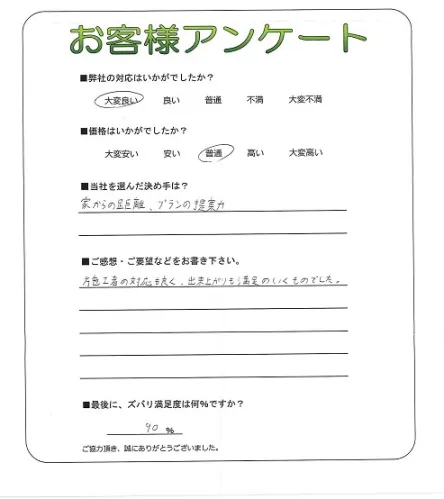 お客様アンケート
■弊社の対応はいかがでしたか？
大変良い 良い 普通 不満 大変不満
■価格はいかがでしたか？
大変安い 安い 普通 高い 大変高い
■当社を選んだ決め手は？
家からの距離、プランの提案力
■ご感想・ご要望などをお書き下さい。
方々工者の対応も良く、出来上がりも満足のいくものでした。
■最後に、ズバリ満足度は何%ですか？
90 %
ご協力頂き、誠にありがとうございました。